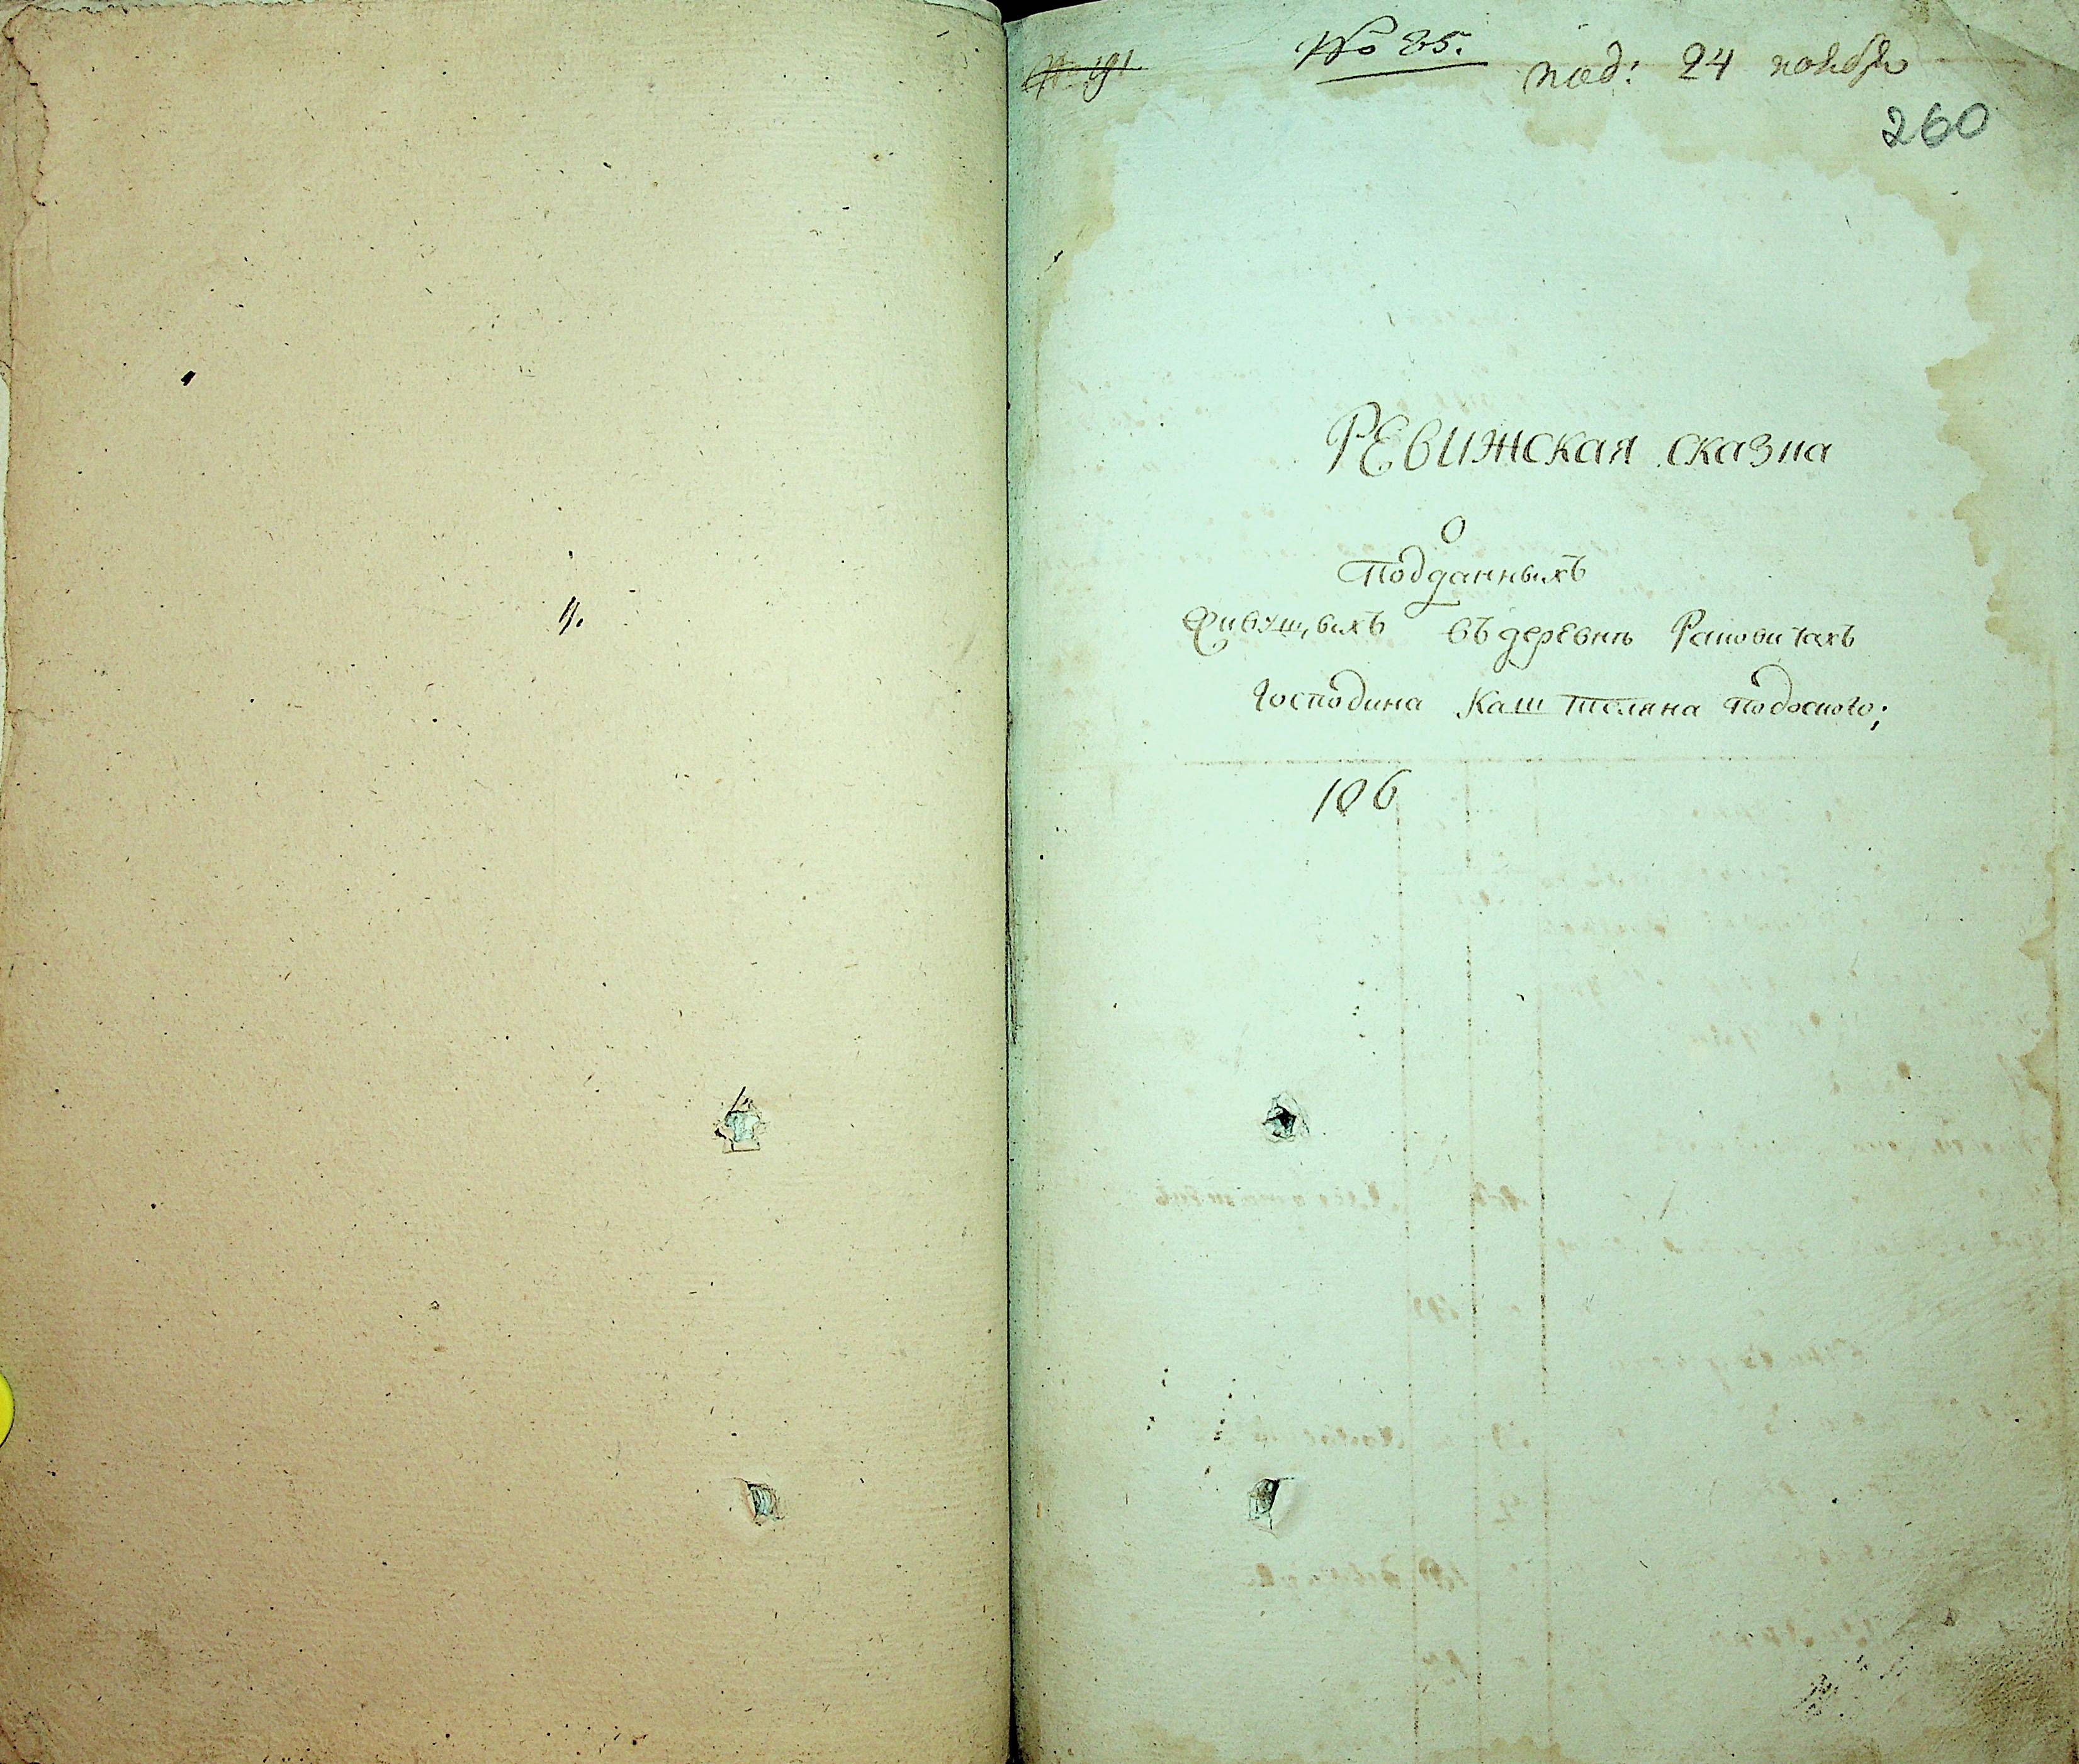 № 191
№ 85.
под: 24 ноября
260
РЕвижская сказка
о
Подданныхъ
Живущихъ въ деревнѣ
Господина Каштеляна Подоского;
106